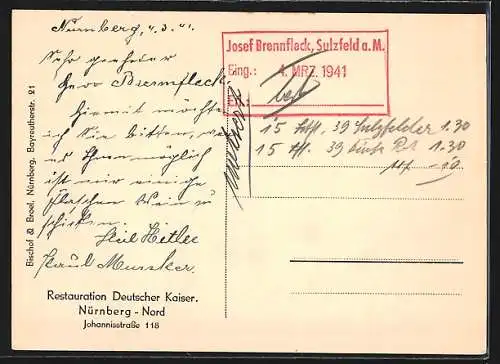 Nürnberg, 4.3.41.
Sehr geehrter
Herr Brennfleck.
Hiermit möchte
ich Sie bitten, wenn
es Ihnen möglich
ist mir einige
Flaschen Wein zu
schicken.
Heil Hitler
Josef Brennfleck, Sulzfeld a. M.
Eing.: 4. MRZ. 1941
15 39 Sulzfelder 1.30
15 39 1.30
Bischof & Broel, Nürnberg, Bayreutherstr. 21
Restauration Deutscher Kaiser.
Nürnberg - Nord
Johannisstraße 118